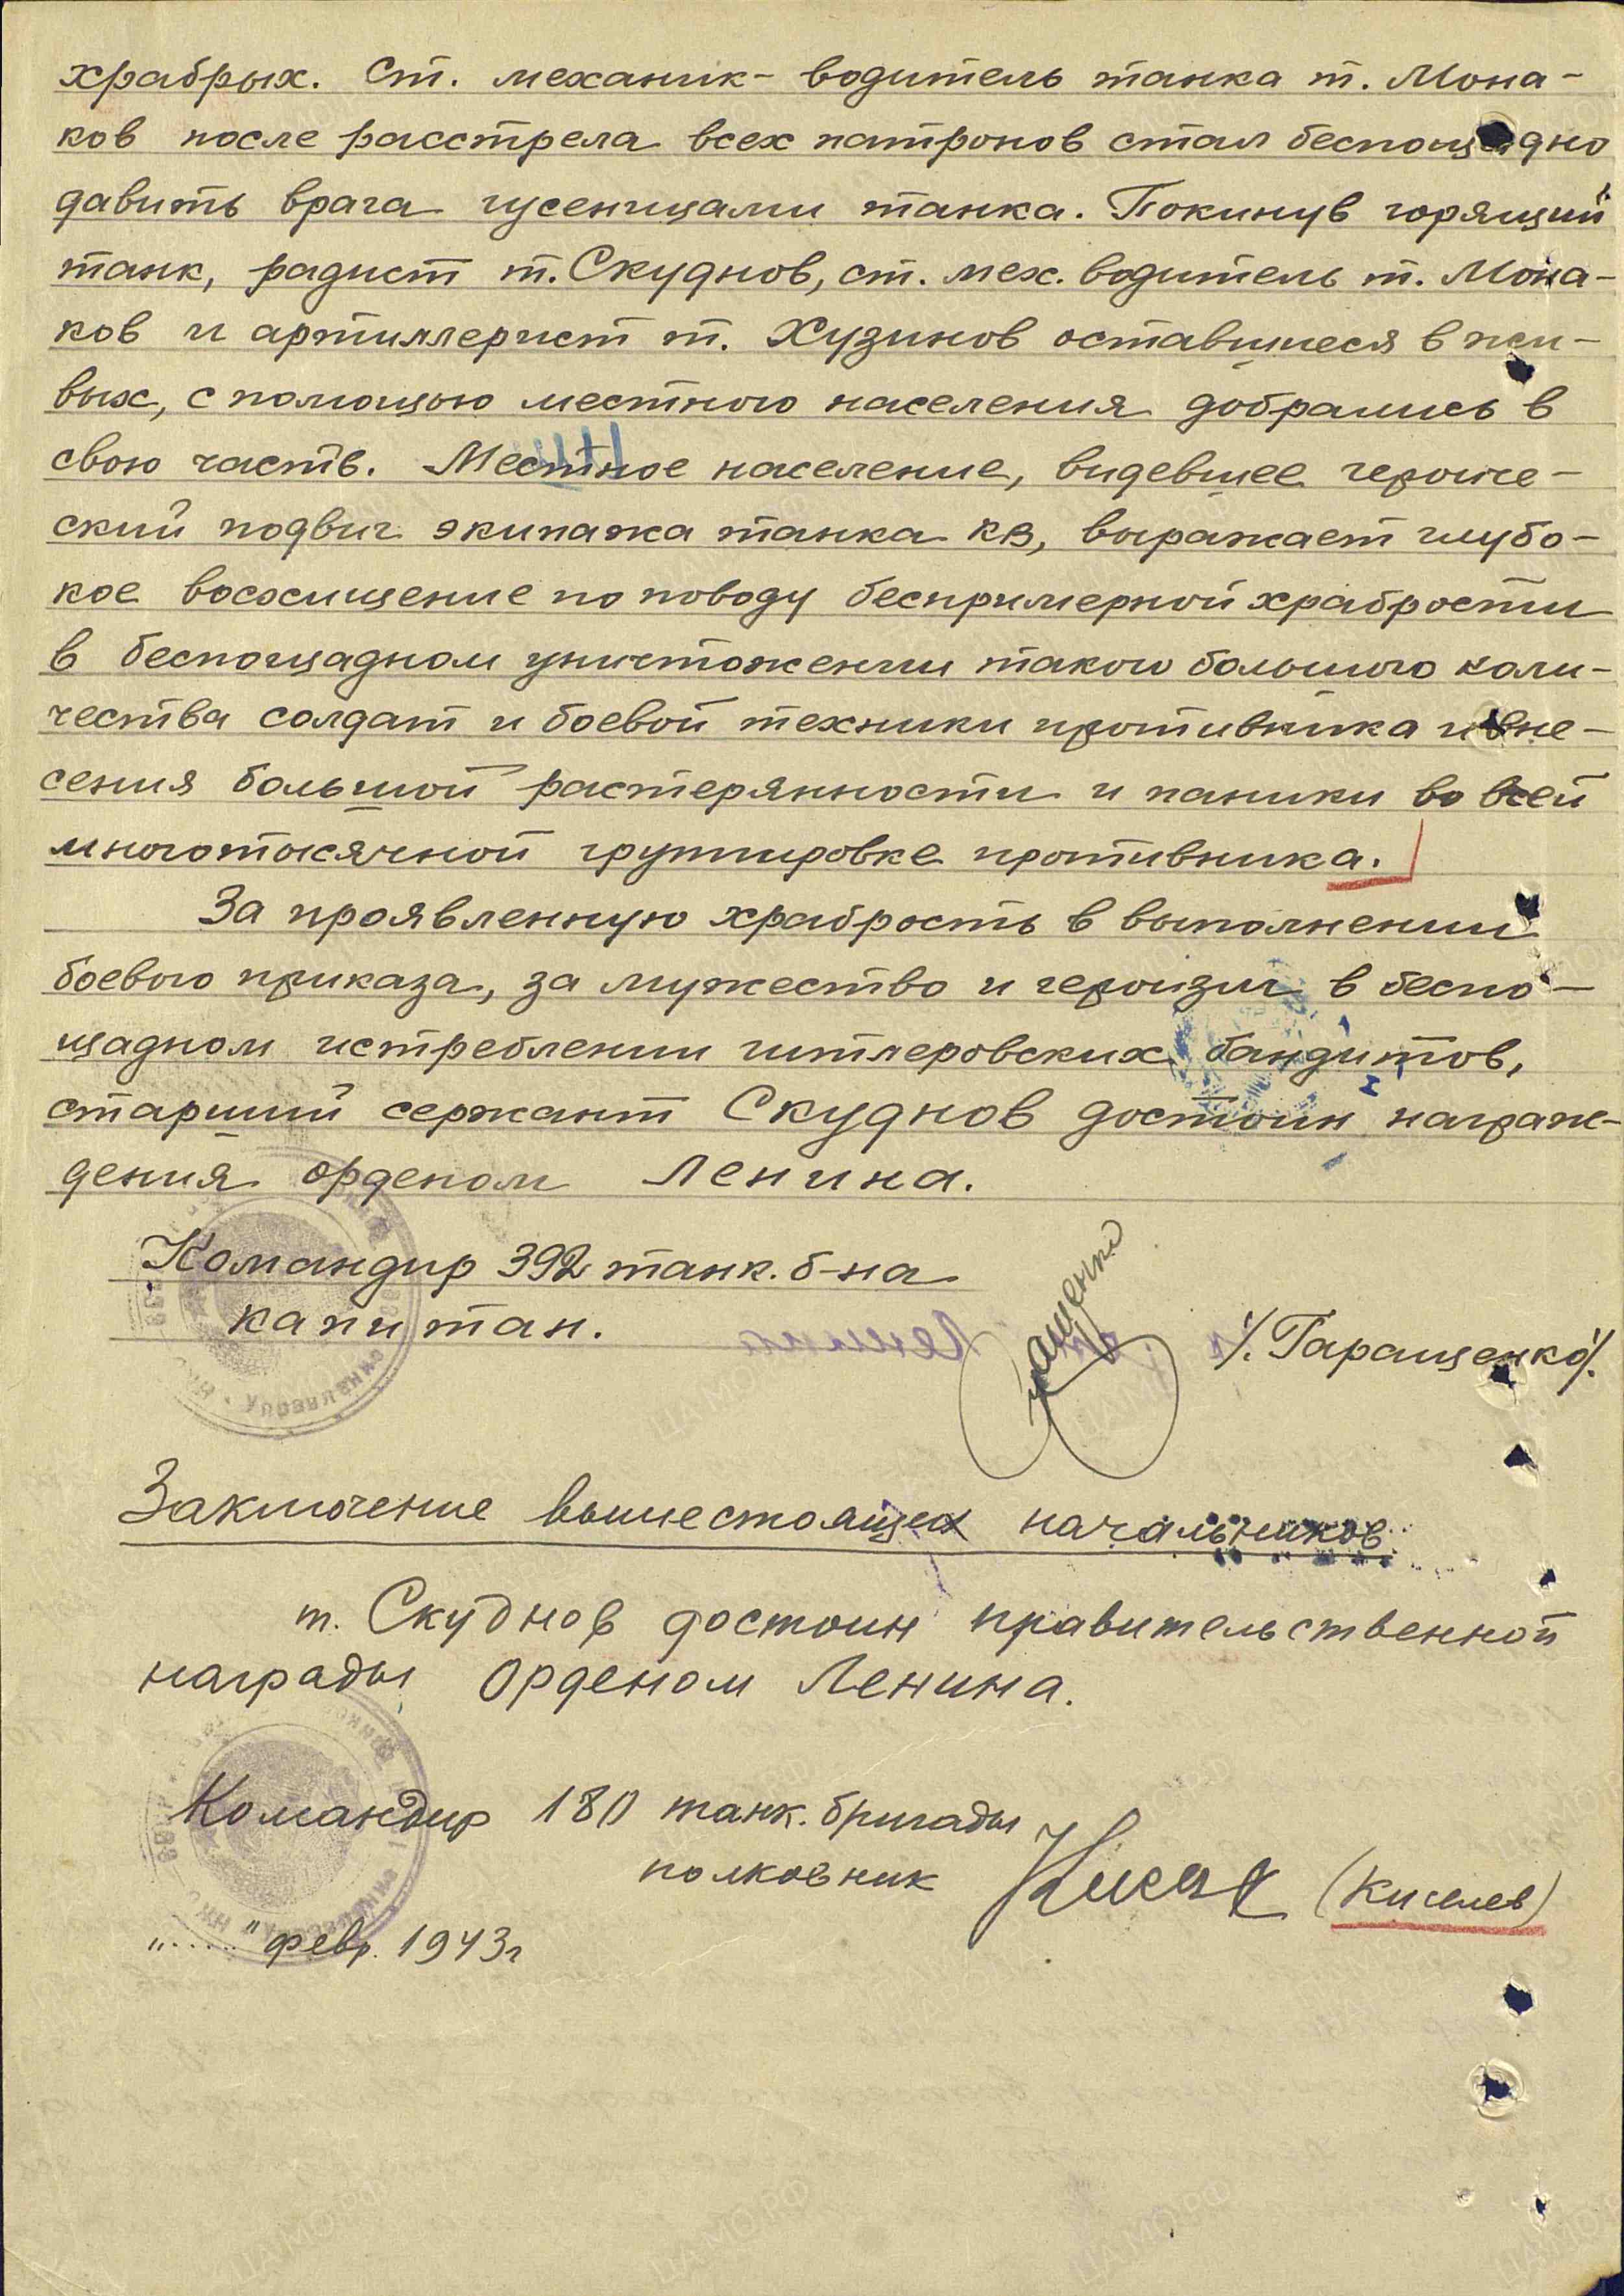 храбрых. Ст. механик-водитель танка т. Мона-
ков после расстрела всех патронов стал беспощадно
давить врага гусеницами танка. Покинув горящий
танк, радист т. Скуднов, ст. мех. водитель т. Мона-
ков и артиллерист т. Хузинов оставшиеся в жи-
вых, с помощью местного населения добрались в
свою часть. Местное население, видевшее героиче-
ский подвиг экипажа танка КВ, выражает глубо-
кое восхищение по поводу беспримерной храбрости
в беспощадном уничтожении такого большого коли-
чества солдат и боевой техники противника и вне-
сения большой растерянности и паники во всей
многотысячной группировке противника.
За проявленную храбрость в выполнении
боевого приказа, за мужество и героизм в беспо-
щадном истреблении гитлеровских бандитов,
старший сержант Скуднов достоин награж-
дения орденом Ленина.
Командир 392 танк. б-на
капитан. /. Гаращенко/.
Заключение вышестоящих начальников
т. Скуднов достоин правительственной
награды Орденом Ленина.
Командир 180 танк. бригады
полковник (Киселев)
"....." февр. 1943г